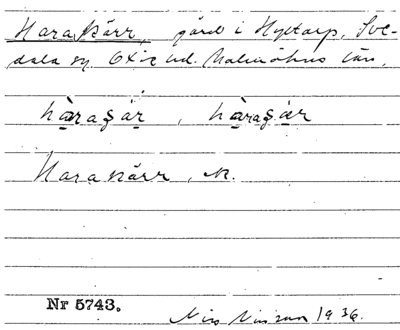 Harakärr, gård i Hyltarp, Sve-
dala sn Oxie hd. Malmöhus län.
hàraşær, hàraşær
Harakärr, N.
Nr 5743.
Nils Nilsson 1936.